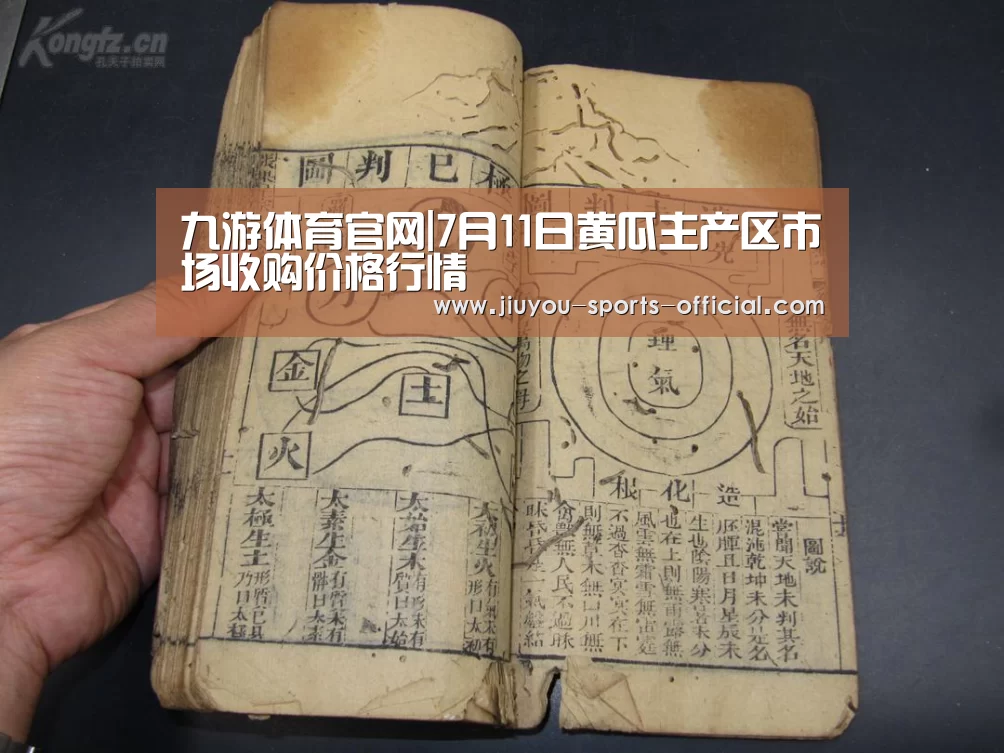 Kongfz.cn
孔夫子拍卖网
極已判圖
九游体育官网|7月11日黄瓜主产区市
场收购价格行情
www.jiuyou-sports-official.com
無名天地之始
萬物之母
理氣
金
土
火
造化根
圖說
嘗聞天地未判其名
混沌乾坤未分是名
胚腪且日月星辰未
生也陰陽寒暑未分
也在上則無雨露無
風雲無霜雪無雷霆
不過杳杳冥冥在下
則無草木無山川無
禽獸無人民不過昧
昧昏昏一氣盤結
太初生火
有氣未有
形曰太初
太始生木
有形未有
質曰太始
太素生金
有質未有
體曰太素
太極生土
形質已具
乃曰太極